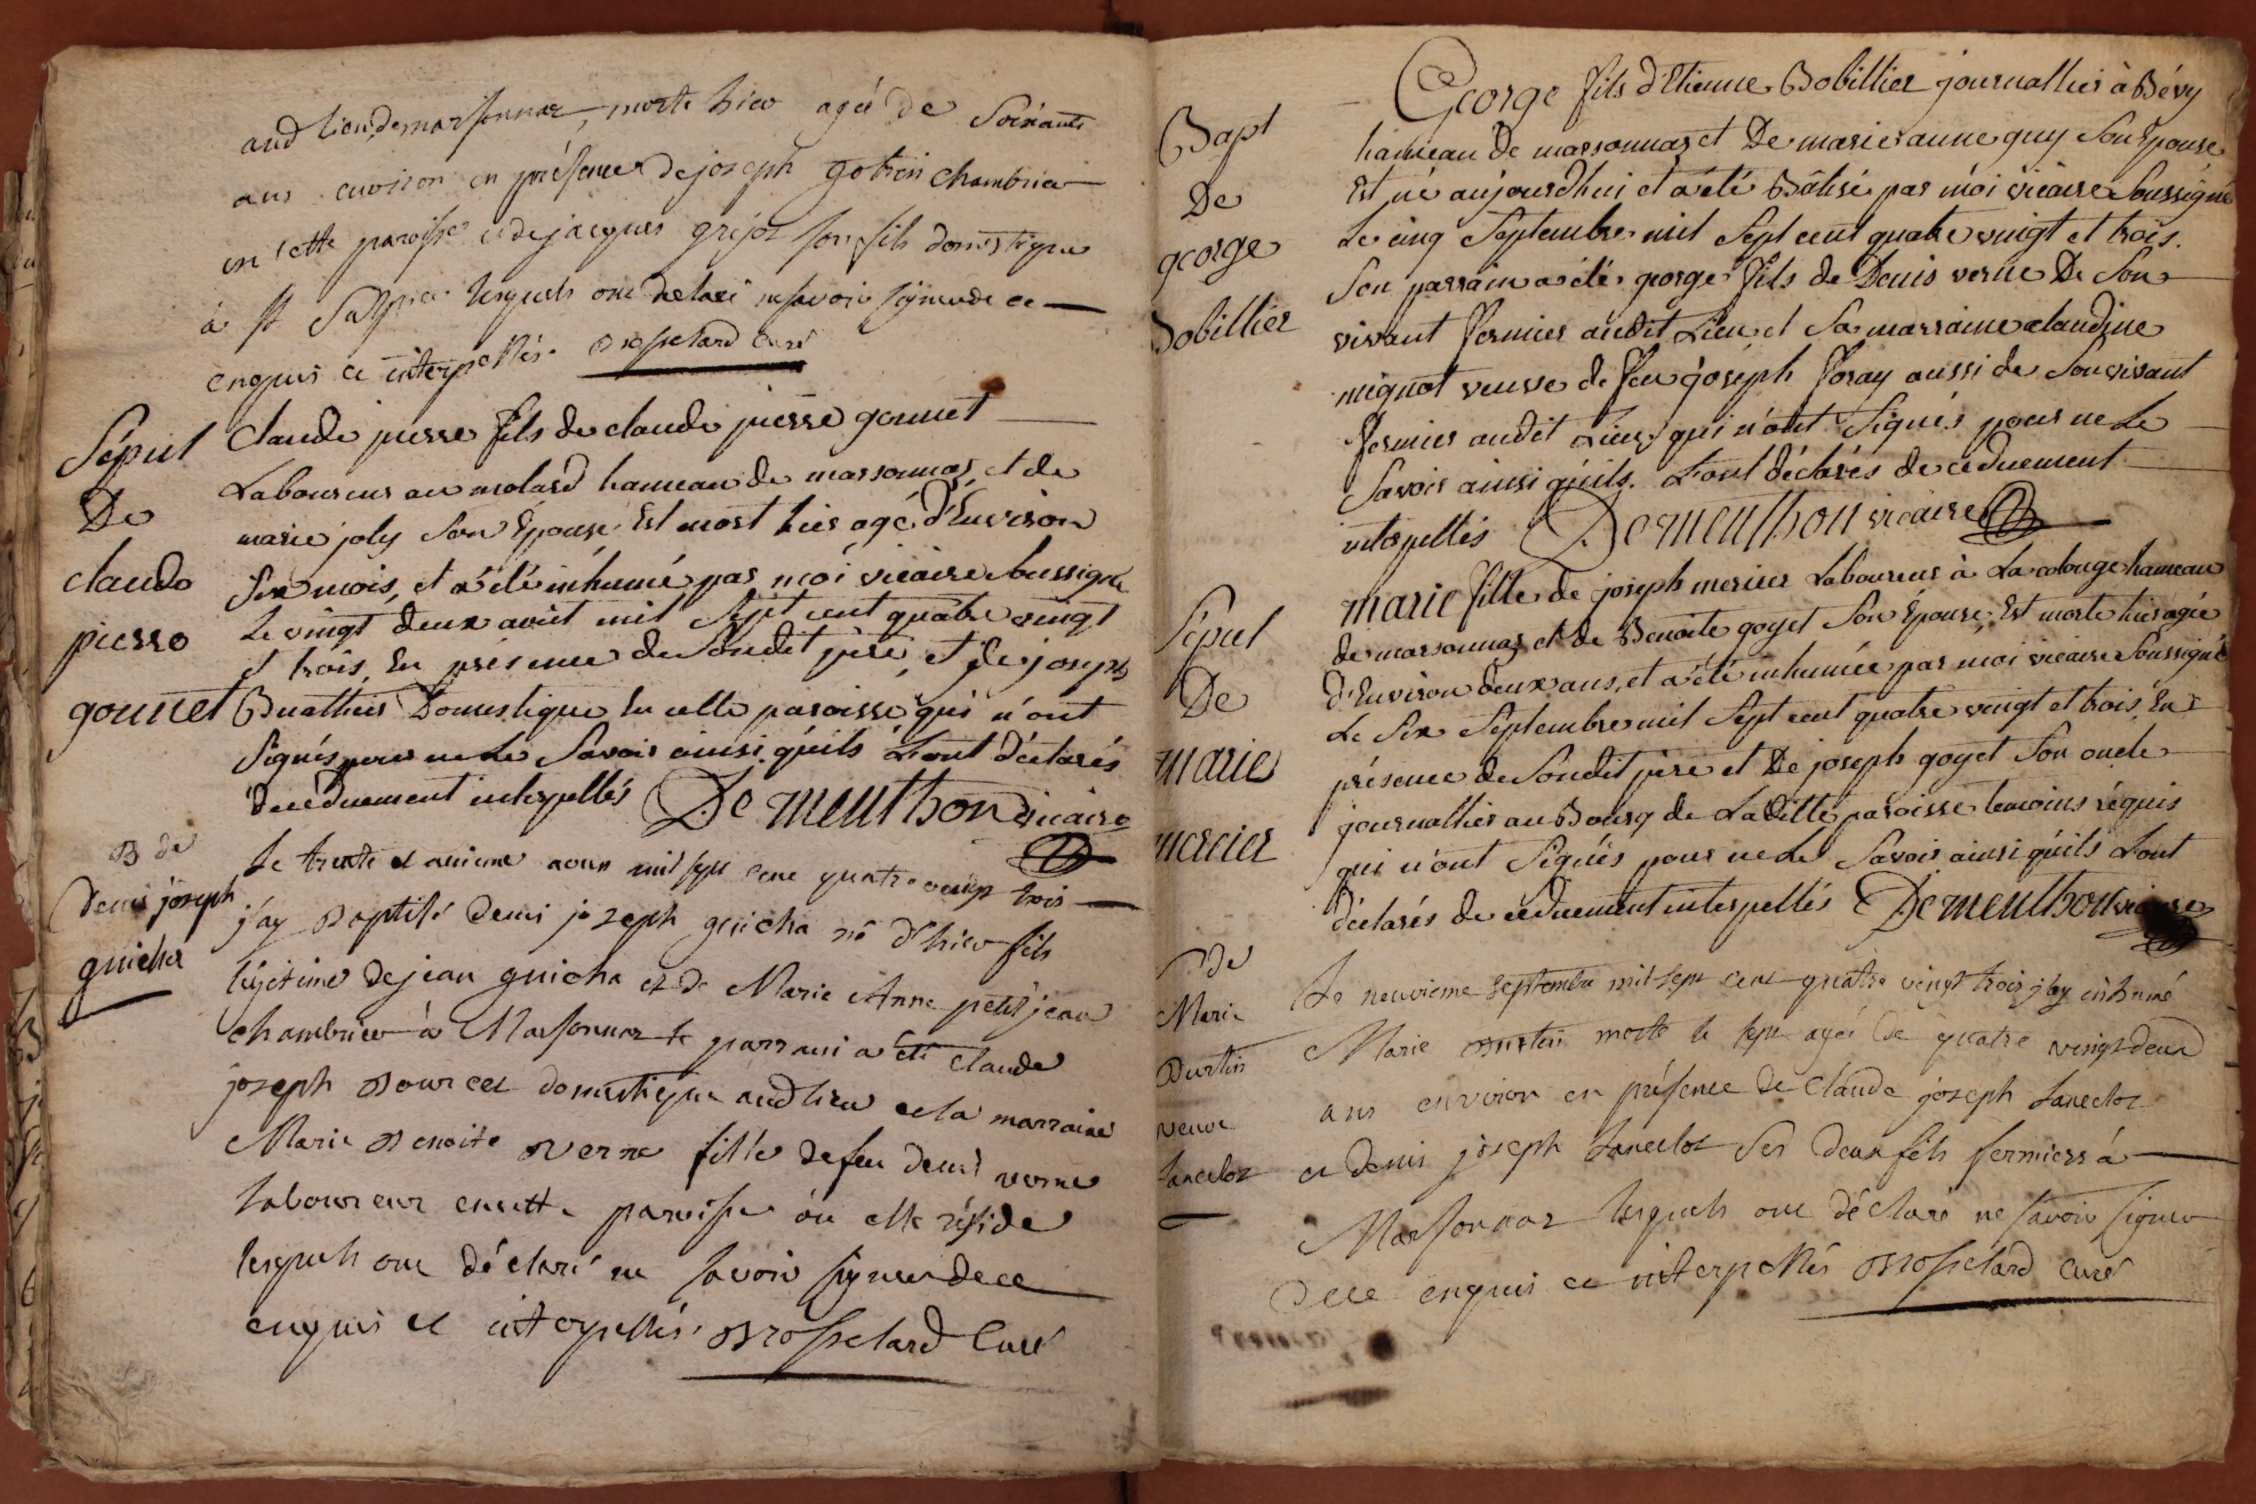 audlieu de marsonnaz, morte hier agée de soixante
ans environ en présence de joseph gotrin chambrier
en cette paroisse et de jacques grejoz son fils domestique
à st Sulpice lesquels ont declaré ne savoir signer de ce
enquis et interpellés. Brosselard curé
Sépul
De
claude
pierre
gonnet
Claude pierre fils de claude pierre gonnet
Laboureur au molard hameau de marsonnas, et de
marie joly son Épouse Est mort hier agé d'Environ
six mois, et a été inhumé par moi vicaire soussigné
Le vingt deux août mil sept cent quatre vingt
et trois, En présence de Sondit père, et de joseph
Buathier Domestique En cette paroisse qui n'ont
signés pour ne Le Savoir ainsi qu'ils L'ont déclarés
de ce duement interpellés De menthon vicaire
B de
denis joseph
guicha
Le trente et unieme aoust mil sept cent quatre vingt trois
j'ay Baptisé denis joseph guicha né d'hier fils
légitime de jean guicha et de Marie Anne petitjean
chambrier à Marsonnaz le parrain a été Claude
joseph Bourcet domestique audlieu et la marraine
Marie Benoite verne fille de feu denis verne
laboureur en cette paroisse où elle réside
lesquels ont déclaré ne savoir signer de ce
enquis et interpellés. Brosselard Curé
Bapt
De
george
Bobillier
George fils d'Etienne Bobillier journallier à Bévy
hameau de marsonnaz et De marie anne guy son Épouse
Est né aujourdhui et a été Bâtisé par moi vicaire Soussigné
Le cinq Septembre mil Sept cent quatre vingt et trois.
Son parrain a été george fils de Denis verne De Son
vivant fermier audit Lieu et Sa marraine claudine
mignot veuve de feu joseph foray aussi de Son vivant
fermier audit Lieu, qui n'ont Signés pour ne Le
Savoir ainsi qu'ils L'ont déclarés de ce duement
interpellés De menthon vicaire
Sépul
De
marie
mercier
marie fille de joseph mercier Laboureur à La alonge hameau
de marsonnaz et de Benoite goyet Son Épouse, Est morte hier agée
d'Environ deux ans, et a été inhumée par moi vicaire Soussigné
Le Six Septembre mil Sept cent quatre vingt et trois, En
présence de Sondit père et De joseph goyet Son oncle
journallier au Bourg de Laditte paroisse temoins réquis
qui n'ont Signés pour ne Le Savoir ainsi qu'ils L'ont
déclarés de ce duement interpellés De menthon vicaire
S de
Marie
Burtin
veuve
Lancelot
Le neuvieme Septembre mil sept cent quatre vingt trois j'ay inhumé
Marie Burtin morte le sept agée de quatre vingt deux
ans environ en présence de Claude joseph Lancelot
et denis joseph Lancelot Ses deux fils fermiers à
Marsonnaz lesquels ont déclaré ne savoir signer
De ce enquis et interpellés Brosselard Curé